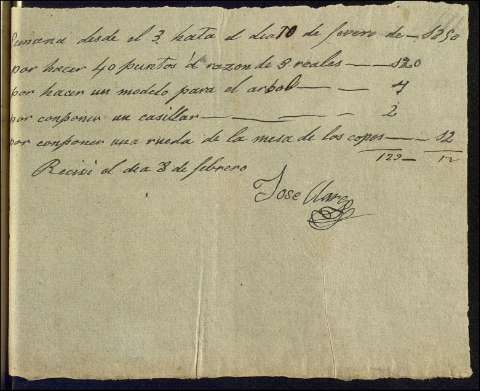 Semana desde el 3 hata el dia 10 de fevero de — 1250
por hacer 40 puntos á razon de 3 reales — 120
por hacer un modelo para el arbol — 4
por conponer un casillar — 2
por conponer una rueda de la mesa de los copos — 12
122 — 12
Recivi al dia 8 de febrero
Jose